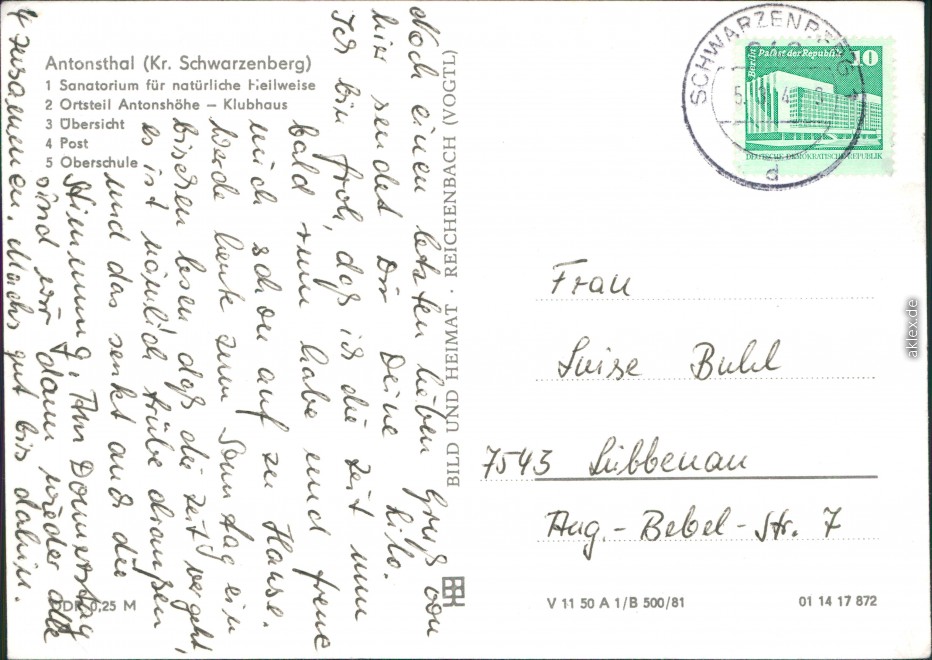 Antonsthal (Kr. Schwarzenberg)
1 Sanatorium für natürliche Heilweise
2 Ortsteil Antonshöhe – Klubhaus
3 Übersicht
4 Post
5 Oberschule
Noch einen letzten lieben Gruß von
hier sendet Dir Deine Lilo.
Ich bin froh, daß ich die Zeit nun
bald rum habe und freue
mich schon auf zu Hause.
Werde heut zum Sonntag ein
bischen lesen, daß die Zeit vergeht,
es ist nämlich trübe draußen
und das senkt auch die
Stimmung. Am Donnerstag
sind wir dann wieder alle
4 zusammen. Machs gut bis dahin.
DDR 0,25 M
BILD UND HEIMAT · REICHENBACH (VOGTL)
SCHWARZENBERG
d
Berlin Palast der Republik
10
DEUTSCHE DEMOKRATISCHE REPUBLIK
Frau
Luise Buhl
7543 Lübbenau
Aug.-Bebel-Str. 7
V 11 50 A 1/B 500/81
01 14 17 872
aklex.de